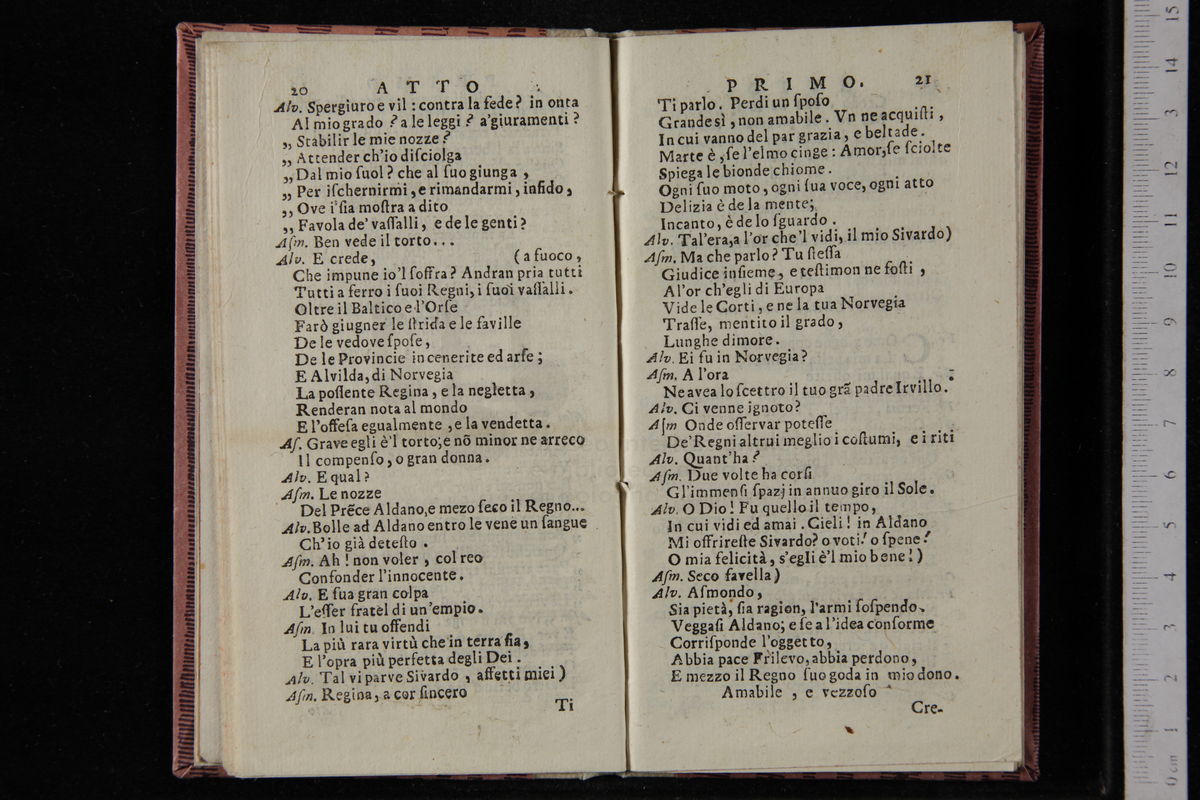 20 ATTO
Alv. Spergiuro e vil : contra la fede? in onta
Al mio grado ? a le leggi ? a'giuramenti ?
,, Stabilir le mie nozze ?
,, Attender ch'io diſciolga
,, Dal mio ſuol ? che al ſuo giunga ,
,, Per iſchernirmi , e rimandarmi , infido ,
,, Ove i' ſia moſtra a dito
,, Favola de' vaſſalli , e de le genti ?
Aſm. Ben vede il torto...
Alv. E crede, (a fuoco ,
Che impune io'l ſoffra? Andran pria tutti
Tutti a ferro i ſuoi Regni, i ſuoi vaſſalli .
Oltre il Baltico e l'Orſe
Farò giugner le ſtrida e le faville
De le vedove ſpoſe ,
De le Provincie incenerite ed arſe ;
E Alvilda, di Norvegia
La poſſente Regina , e la negletta ,
Renderan nota al mondo
E l'offeſa egualmente , e la vendetta .
Aſ. Grave egli è'l torto; e nō minor ne arreco
Il compenſo , o gran donna .
Alv. E qual ?
Aſm. Le nozze
Del Prēce Aldano, e mezo ſeco il Regno...
Alv. Bolle ad Aldano entro le vene un ſangue
Ch'io già deteſto .
Aſm. Ah ! non voler , col reo
Confonder l'innocente .
Alv. E ſua gran colpa
L'eſſer fratel di un'empio .
Aſm. In lui tu offendi
La più rara virtù che in terra ſia ,
E l'opra più perfetta degli Dei .
Alv. Tal vi parve Sivardo , affetti miei )
Aſm. Regina, a cor ſincero
Ti
PRIMO. 21
Ti parlo . Perdi un ſpoſo
Grande sì , non amabile . Vn ne acquiſti ,
In cui vanno del par grazia , e beltade .
Marte è , ſe l'elmo cinge : Amor, ſe ſciolte
Spiega le bionde chiome .
Ogni ſuo moto , ogni ſua voce, ogni atto
Delizia è de la mente;
Incanto, è de lo ſguardo .
Alv. Tal'era, a l'or che'l vidi, il mio Sivardo)
Aſm. Ma che parlo ? Tu ſteſſa
Giudice inſieme, e teſtimon ne foſti ,
Al'or ch'egli di Europa
Vide le Corti , e ne la tua Norvegia
Traſſe, mentito il grado ,
Lunghe dimore .
Alv. Ei fu in Norvegia ?
Aſm. A l'ora
Ne avea lo ſcettro il tuo grā padre Irvillo.
Alv. Ci venne ignoto?
Aſm Onde oſſervar poteſſe
De'Regni altrui meglio i coſtumi, e i riti
Alv. Quant'ha ?
Aſm. Due volte ha corſi
Gl'immenſi ſpazj in annuo giro il Sole .
Alv. O Dio ! Fu quello il tempo,
In cui vidi ed amai . Cieli ! in Aldano
Mi offrireſte Sivardo? o voti! o ſpene !
O mia felicità , s'egli è'l mio bene ! )
Aſm. Seco favella )
Alv. Aſmondo ,
Sia pietà, ſia ragion, l'armi ſoſpendo.
Veggaſi Aldano; e ſe a l'idea conforme
Corriſponde l'oggetto,
Abbia pace Frilevo, abbia perdono ,
E mezzo il Regno ſuo goda in mio dono .
Amabile , e vezzoſo
Cre-